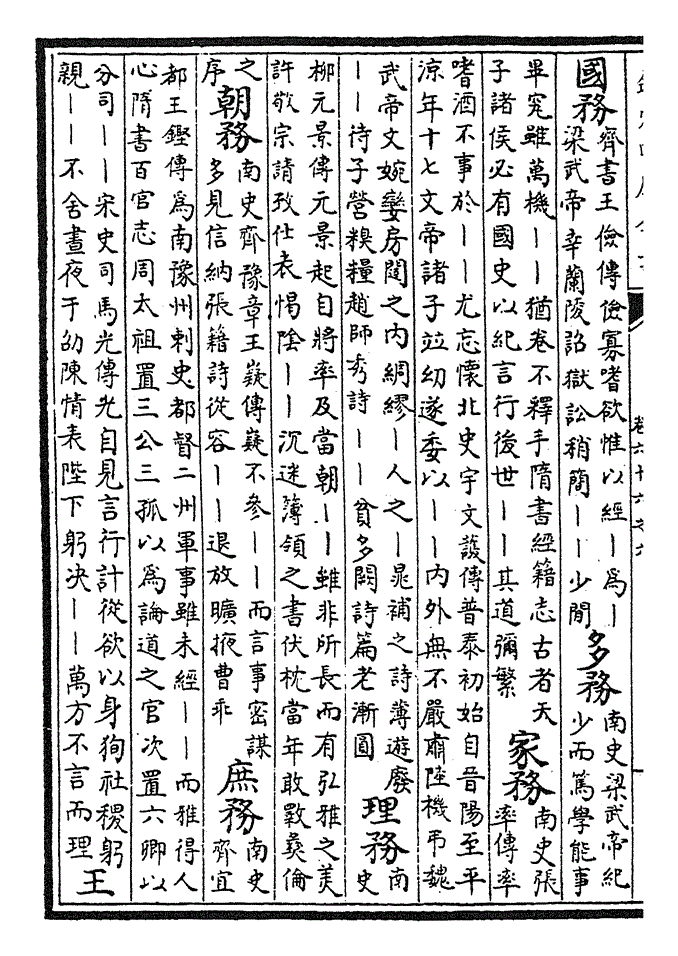 卷六十六之六
國務
齊書王儉傳儉寡嗜欲惟以經丨爲丨
梁武帝幸蘭陵詔獄訟稍簡丨丨少閒
多務
南史梁武帝紀
少而篤學能事
畢究雖萬機丨丨猶卷不釋手隋書經籍志古者天
子諸侯必有國史以紀言行後世丨丨其道彌繁
家務
南史張
率傳率
嗜酒不事於丨丨尤忘懷北史宇文護傳普泰初始自晉陽至平
涼年十七文帝諸子竝幼遂委以丨丨内外無不嚴肅陸機弔魏
武帝文婉孌房闥之内綢繆丨人之丨晁補之詩薄遊廢
丨丨待子營糗糧趙師秀詩丨丨貧多闕詩篇老漸圓
理務
南
史
柳元景傳元景起自將率及當朝丨丨雖非所長而有弘雅之美
許敬宗請致仕表惕陰丨丨沉迷簿領之書伏枕當年敢斁彝倫
之
序
朝務
南史齊豫章王嶷傳嶷不參丨丨而言事密謀
多見信納張籍詩從容丨丨退放曠掖曹乖
庶務
南史
齊宜
都王鏗傳爲南豫州刺史都督二州軍事雖未經丨丨而雅得人
心隋書百官志周太祖置三公三孤以爲論道之官次置六卿以
分司丨丨宋史司馬光傳光自見言行計從欲以身狥社稷躬
親丨丨不舍晝夜于劭陳情表陛下躬決丨丨萬方不言而理
王